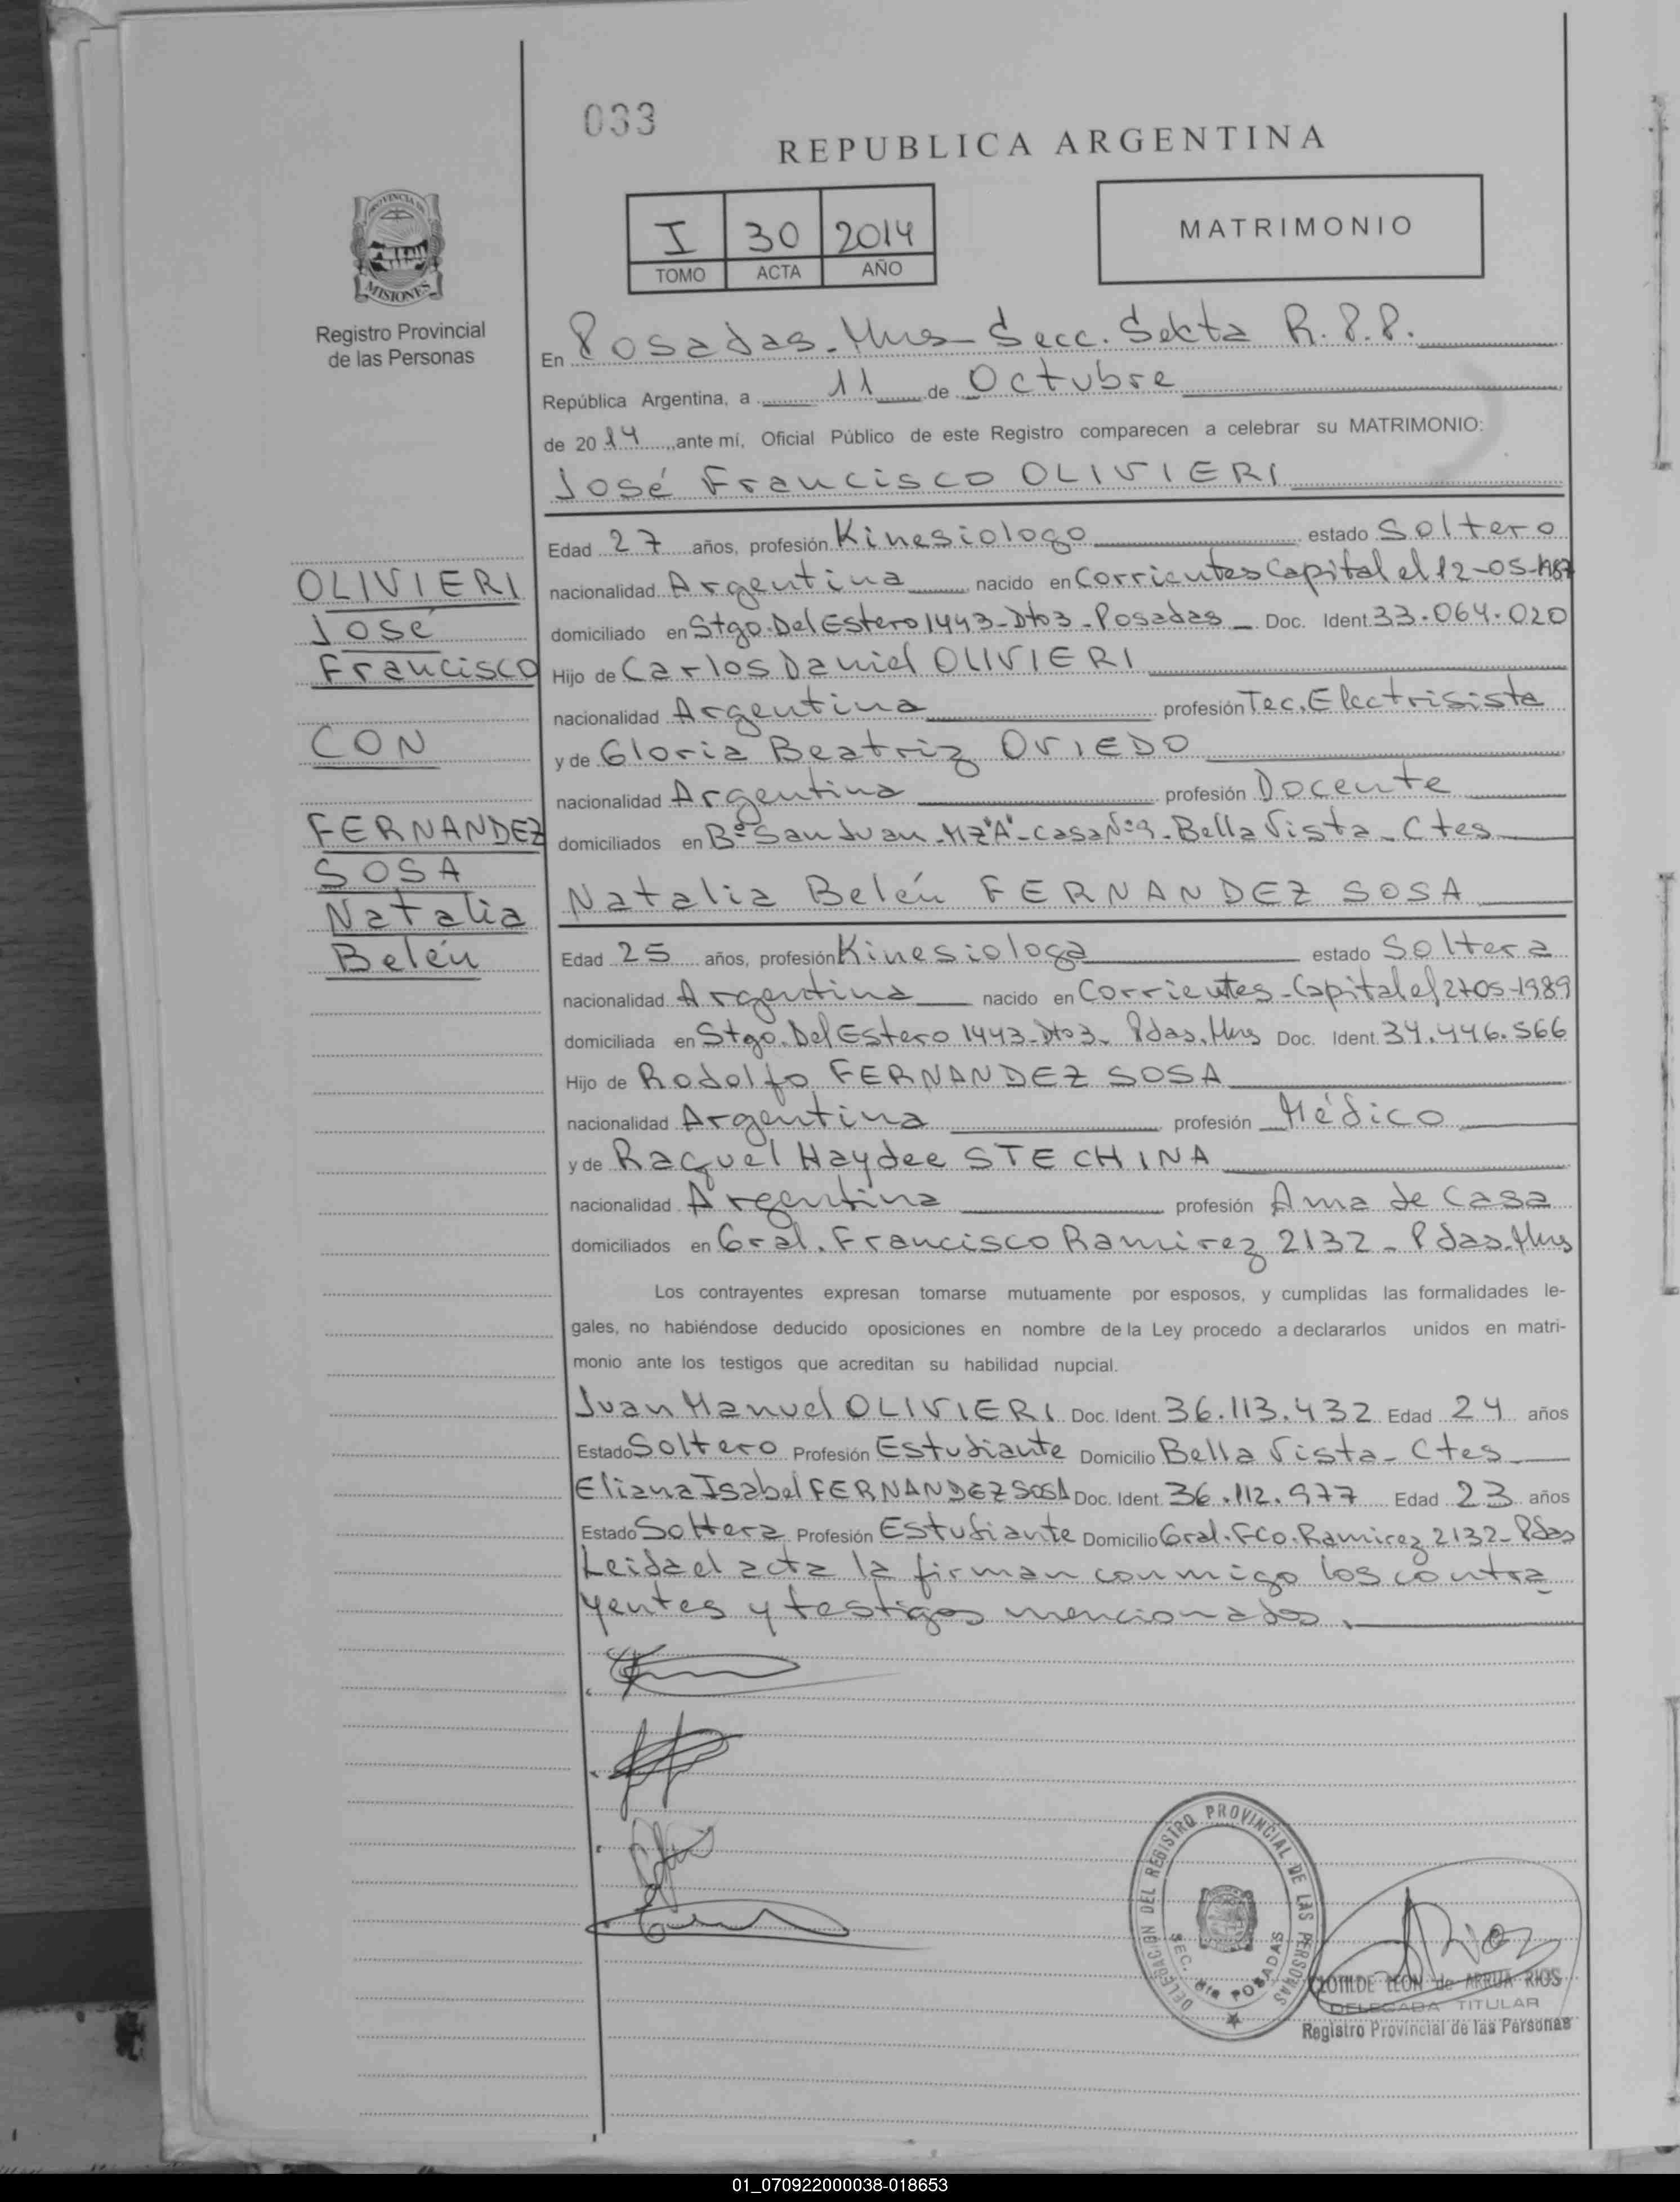 033
REPUBLICA ARGENTINA
PROVINCIA DE
MISIONES
Registro Provincial
de las Personas
I 30 2014
TOMO ACTA AÑO
MATRIMONIO
En Posadas-Mns- Secc. Sexta R.P.P.
República Argentina, a 11 de Octubre
de 2014, ante mí, Oficial Público de este Registro comparecen a celebrar su MATRIMONIO:
José Francisco OLIVIERI
Edad 27 años, profesión Kinesiologo estado Soltero
nacionalidad Argentina nacido en Corrientes Capital el 12-05-1987
domiciliado en Stgo. Del Estero 1443-Dto3-Posadas- Doc. Ident. 33.064.020
Hijo de Carlos Daniel OLIVIERI
nacionalidad Argentina profesión Tec. Electrisista
y de Gloria Beatriz OVIEDO
nacionalidad Argentina profesión Docente
domiciliados en B° San Juan-Mz"A"-casa N°9-Bella Vista-Ctes
OLIVIERI
José
Francisco
CON
FERNANDEZ
SOSA
Natalia
Belén
Natalia Belén FERNANDEZ SOSA
Edad 25 años, profesión Kinesiologa estado Soltera
nacionalidad Argentina nacido en Corrientes-Capital el 27-05-1989
domiciliada en Stgo. Del Estero 1443-Dto3- Pdas. Mns Doc. Ident. 34.446.566
Hijo de Rodolfo FERNANDEZ SOSA
nacionalidad Argentina profesión Médico
y de Raquel Haydee STECHINA
nacionalidad Argentina profesión Ama de Casa
domiciliados en Gral. Francisco Ramirez 2132- Pdas. Mns
Los contrayentes expresan tomarse mutuamente por esposos, y cumplidas las formalidades le-
gales, no habiéndose deducido oposiciones en nombre de la Ley procedo a declararlos unidos en matri-
monio ante los testigos que acreditan su habilidad nupcial.
Juan Manuel OLIVIERI Doc. Ident. 36.113.432 Edad 24 años
Estado Soltero Profesión Estudiante Domicilio Bella Vista- Ctes
Eliana Isabel FERNANDEZ SOSA Doc. Ident. 36.112.977 Edad 23 años
Estado Soltera Profesión Estudiante Domicilio Gral. Fco. Ramirez 2132-Pdas
Leida el acta la firman conmigo los contra
yentes y testigos mencionados.
DELEGACION DEL REGISTRO PROVINCIAL DE LAS PERSONAS
SEC. 6ta POSADAS
CLOTILDE LEON de ARRUA RIOS
DELEGADA TITULAR
Registro Provincial de las Personas
01_070922000038-018653